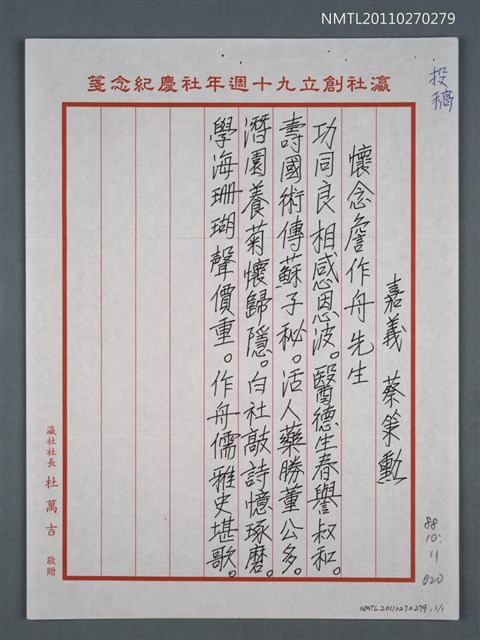 NMTL20110270279
投稿
瀛社創立九十週年社慶紀念箋
嘉義 蔡策勳
懷念詹作舟先生
功同良相感恩波。醫德生春譽叔和。
壽國術傳蘇子秘。活人藥勝董公多。
潛園養菊懷歸隱。白社敲詩憶琢磨。
學海珊瑚聲價重。作舟儒雅史堪歌。
瀛社社長 杜萬吉 敬贈
88.
10.
11
020
NMTL20110270279, 1/1